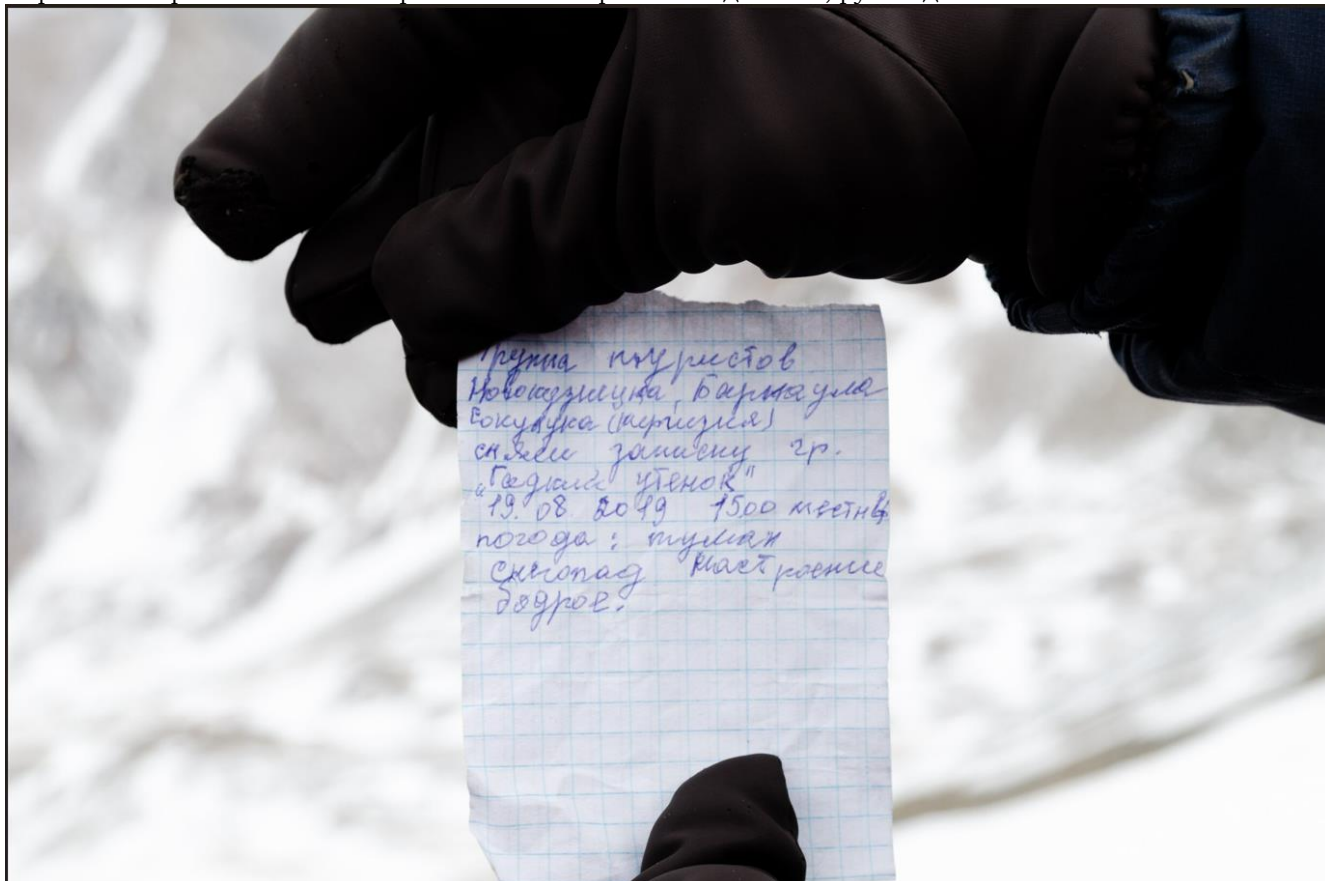 Группа туристов
Новокузнецка, Барнаула
Сокулука (Киргизия)
сняли записку гр.
„Гадкий утенок"
19. 08 2019 1500 местн
погода: туман
снегопад настроение
бодрое.